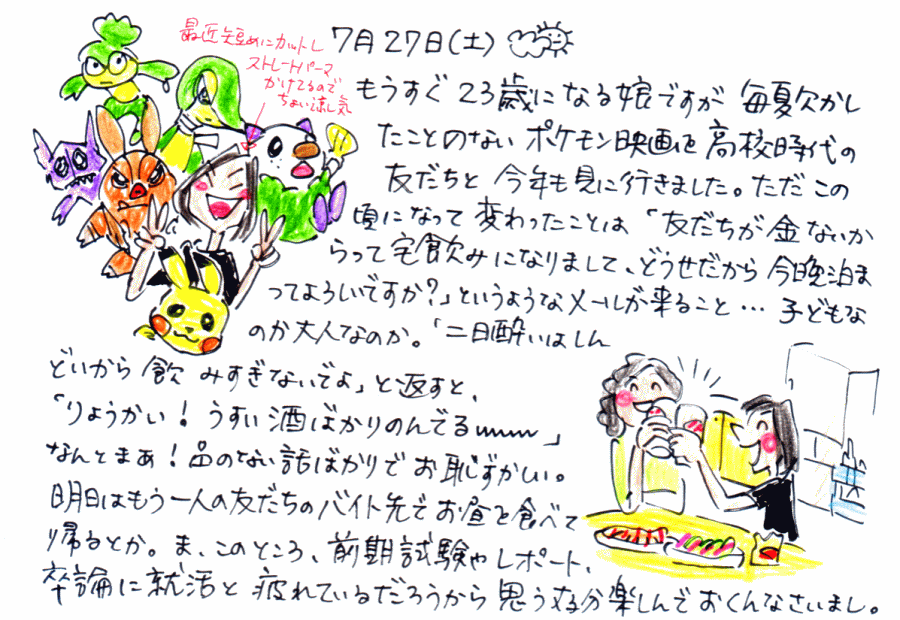 7月27日(土)
最近短めにカットし
ストレートパーマ
かけてるので
ちょい涼し気
もうすぐ23歳になる娘ですが 毎夏欠かし
たことのない ポケモン映画を 高校時代の
友だちと 今年も見に行きました。ただこの
頃になって 変わったことは「友だちが金ないか
らって宅飲みになりまして、どうせだから 今晩泊ま
ってよろしいですか?」というようなメールが来ること… 子どもな
のか大人なのか。「二日酔いはしん
どいから 飲みすぎないでよ」と返すと、
「りょうかい!うすい酒ばかりのんでるwww」
なんとまぁ!品のない話ばかりで お恥ずかしい。
明日はもう一人の友だちのバイト先で お昼を食べて
帰るとか。ま、このところ、前期試験やレポート、
卒論に就活と 疲れているだろうから 思う存分楽しんで おくんなさいまし。